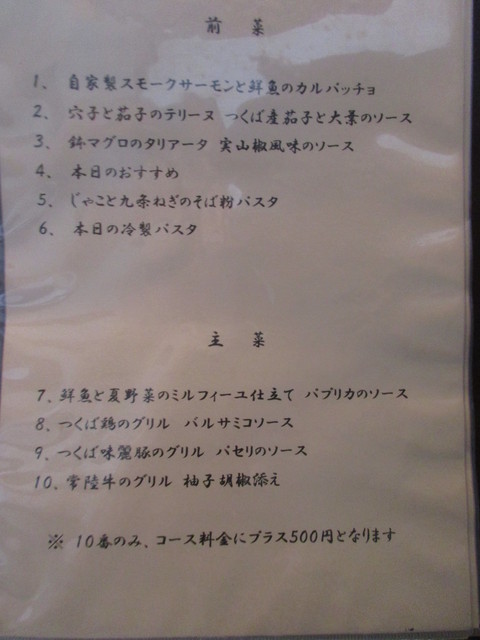 前菜
1、 自家製スモークサーモンと鮮魚のカルパッチョ
2、 穴子と茄子のテリーヌ つくば産茄子と大葉のソース
3、 鉢マグロのタリアータ 実山椒風味のソース
4、 本日のおすすめ
5、 じゃこと九条ねぎのそば粉パスタ
6、 本日の冷製パスタ
主菜
7、鮮魚と夏野菜のミルフィーユ仕立て パプリカのソース
8、つくば鶏のグリル バルサミコソース
9、つくば味麗豚のグリル パセリのソース
10、常陸牛のグリル 柚子胡椒添え
※ 10番のみ、コース料金にプラス500円となります